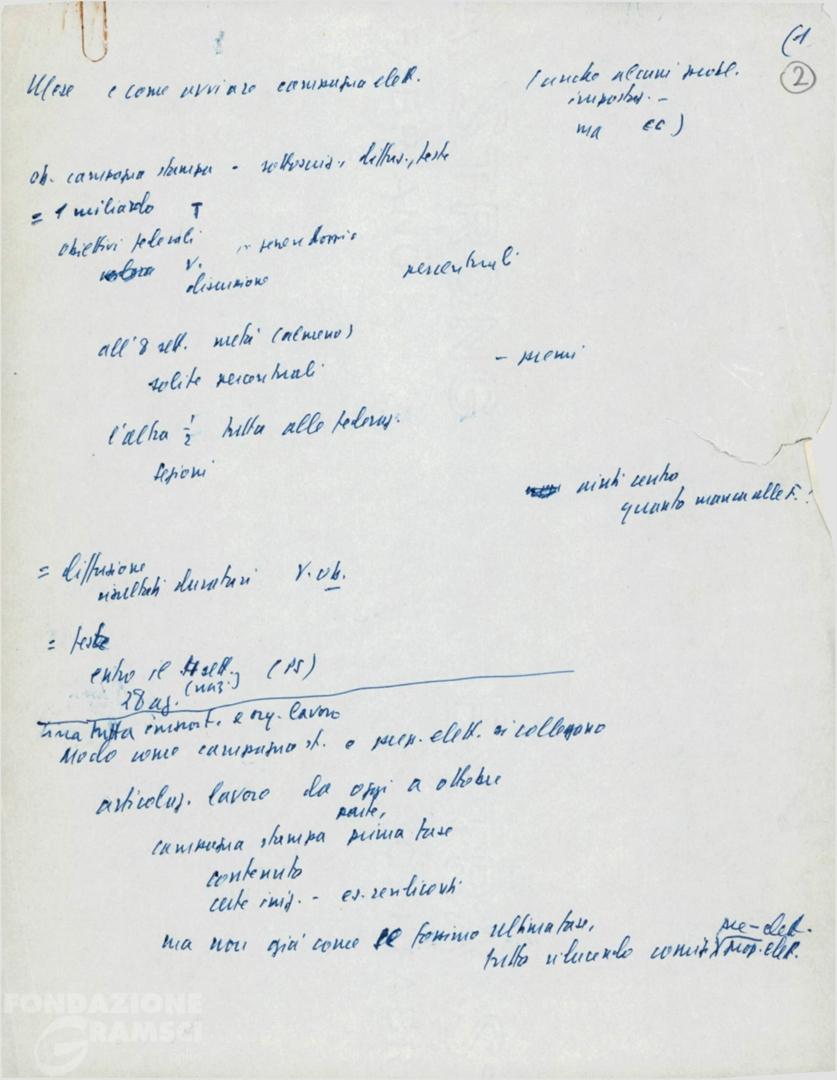 (1
2
Mese e come avviare campagna elett.
(anche alcuni probl.
impostaz. -
ma cc)
ob. campagna stampa - sottoscriz., diffus., feste
= 1 miliardo
obiettivi federali
v.
discussione
percentuali
all'8 sett. metà (almeno)
solite percentuali
- premi
l'altra ½ tutta alle federaz.
sezioni
aiuti centro
quanto manca alle F.:
= diffusione
risultati duraturi v. ob.
= feste
entro il sett. (PS)
28 ag. (naz.)
una tutta impost. e org. lavoro
Modo come campagna st. e prep. elett. si collegano
articolaz. lavoro da oggi a ottobre
parte,
campagna stampa prima fase
contenuto
certe iniz. - es. rendiconti
ma non già come se fossimo ultima fase,
pre-elett.
tutto riducendo comizi prop. elett.
FONDAZIONE
GRAMSCI